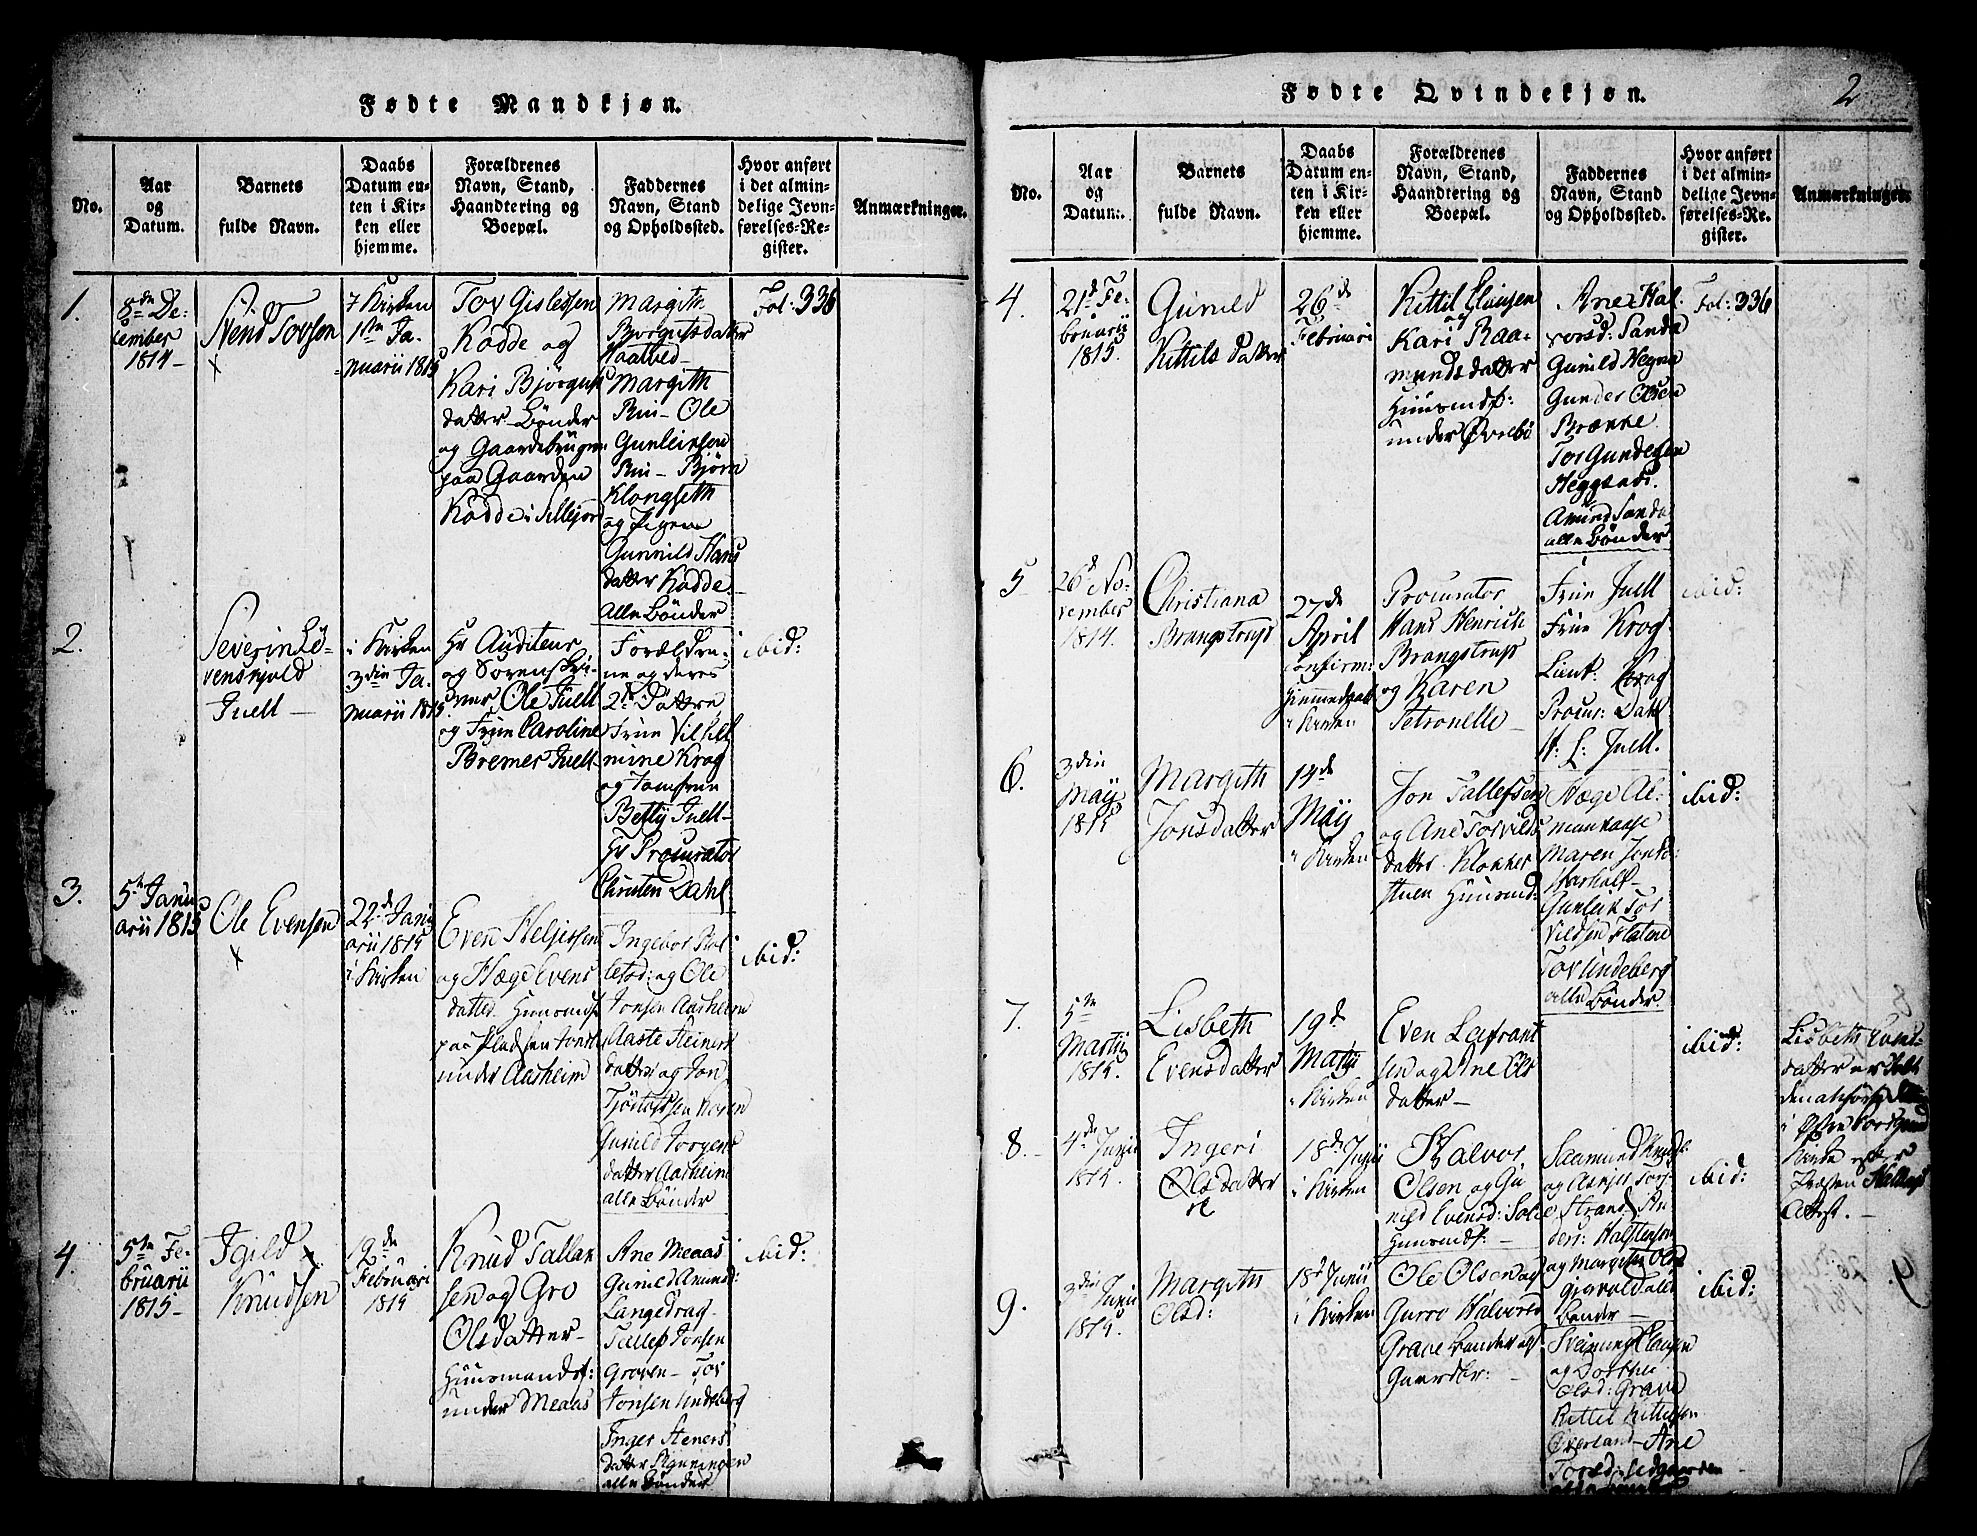 Fødte Mandkjøn.
No.
Aar
og
Datum.
Barnets
fulde Navn.
Daabs
Datum en-
ten i Kir-
ken eller
hjemme.
Forældrenes
Navn, Stand,
Haandtering og
Boepæl.
Faddernes
Navn, Stand
og Opholdssted.
Hvor anført
i det almin-
delige Jevn-
førelses-Re-
gister.
Anmærkninger.
1.
8de De-
cember
1814 –
Svend Tovsen
×
i Kirken
1ste Ja-
nuarii 1815
Tov Gislessen
Kodde og
Kari Bjørguls
datter Bønder
og Gaardebruger
paa Gaarden
Kodde i Sillejord
Margith
Bjorgulsdatter
Margith
Bui – Ole
Gunleiksen
Bui – Bjørn
Klongseth
og Pigen
Gunnild Hans
datter Kodde.
Alle Bønder
Fol: 336
2.
Severin Lö-
venskjold
Juell –
i Kirken
3die Ja-
nuarii 1815
Hr Auditeur
og Sorenskri-
ver Ole Juell
og Frue Caroline
Bremer Juell
Forældre-
ne og deres
2de Døttre
Frue Vilhel
mine Krog
og Jomfrue
Betty Juell –
Hr Procurator
Christen Dahl
ibid:
3.
5te Janu
arii 1815
Ole Evensen
×
22de Janu
arii 1815
i Kirken
Even Helgessen
og Hæge Evens
datter Huusmsf
paa Pladsen
under Aasheim
Ingebor
og Ole
Jonsen Aasheim
Aaste Steiners
datter og Jon
Tjöstolfsen
Gunild Jorgens
datter Aasheim
alle Bønder
ibid:
4.
5te Fe-
bruarii
1815 –
Igild ×
Knudsen
19de
Februari
1815
Knud Tallak
sen og Gro
Olsdatter –
Huusmandsf:
under Meaas
Ane Meaas
Gunild Amund:
Langedrag –
Tallef Jonsen
Groven – Tov
Jonsen Undeberg
Inger Steners
datter
alle Bønder
ibid:
Fødte Qvindekjøn.
2
No.
Aar
og
Datum.
Barnets
fulde Navn.
Daabs
Datum en-
ten i Kir-
ken eller
hjemme.
Forældrenes
Navn, Stand,
Haandtering og
Boepæl.
Faddernes
Navn, Stand
og Opholdssted.
Hvor anført
i det almin-
delige Jevn-
førelses-Re-
gister.
Anmærkninger.
4.
21de Fe-
bruarii
1815.
Gunild
Kittils datter
26de
Februari
Kittil Clausen
og
Kari Raa-
mundsdatter
Huusmdsf:
under Øvrebö
Ane Hal-
vorsd: Sanda
Gunild Hegna
Gunder Olsen
Brække
Tov Gundersen
Heggtveit.
Amund Sanda
alle Bønder
Fol: 336
5
26d No-
vember
1814.
Christiana
Brangstrup
27de
April
Confirm:
hjemmedaab
i Kirken
Procurator
Hans Henrich
Brangstrup
og Karen
Petronelle –
Frue Juell
Frue Krog
Lieut. Krog
Procur: Dahl
H: L: Juell.
ibid:
6.
3die
Maij
1815
Margith
Jonsdatter
14de
Maij
i Kirken
Jon Tallefsen
og Ane Torvilds
datter Klokker
stuen Huusmd:
Hæge
Maren Jonsd:
Gunleik Tor
vildsen Flatene
Tov Undeberg
alle Bønder.
ibid:
7.
5te
Martij
1815.
Lisbeth
Evensdatter
19d
Martij
i Kirken
Even Lafrant
sen og Ane Ols
datter –
ibid:
Lisbeth Evens-
datter er
i
efter
Attest. –
8.
4de Junii
1815.
Ingeri
Olsdatter
18de Junii
i Kirken
Halvor
Olsen og Gu
nild Evensd:
Huusmdsf: –
Saamund Knuds:
Strand An
ders: Halstensen
og Margith Olsd
alle
Bønder –
ibid:
9.
3die Junii
1815.
Margith
Olsd:
18d Junii
i Kirken
Ole Olsen og
Gurro Halvorsd
Grave Bønder og
Gaardbr: –
Sveinung Clausen
og Dorthea
Olsd: Grave
Kittil Kittilsen
Overland – Ane
ibid: